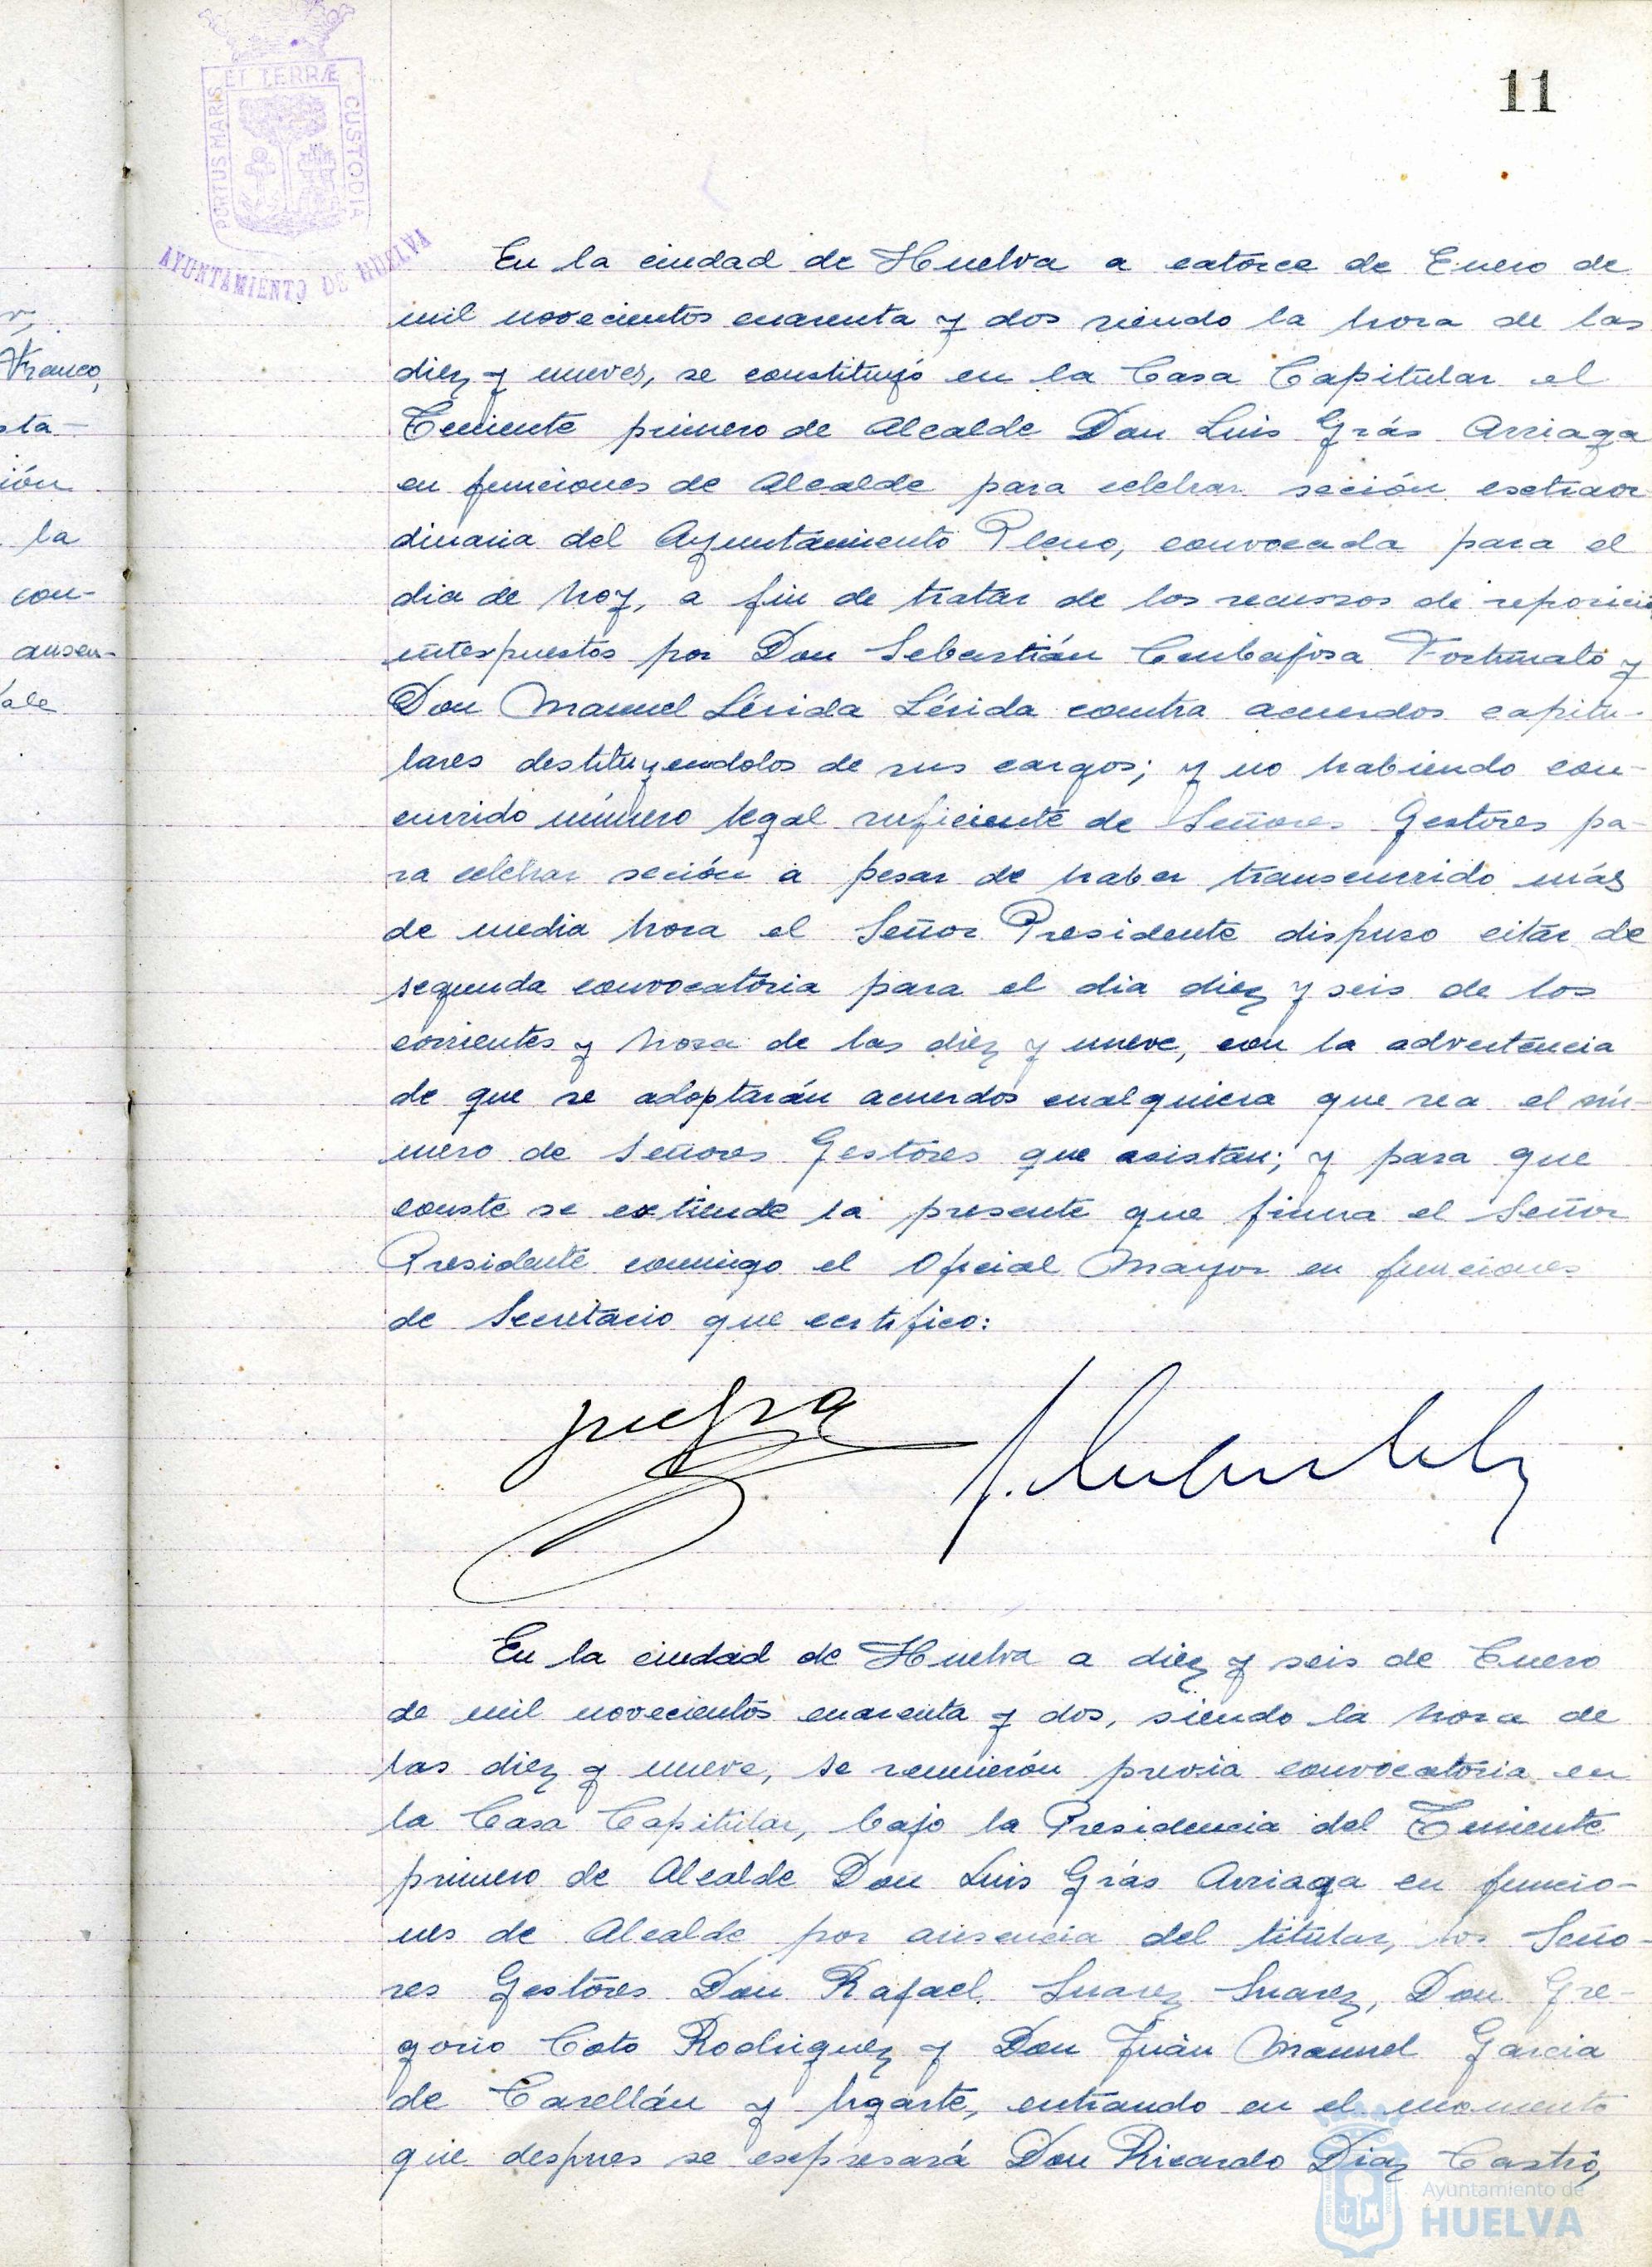 11
PORTUS MARIS
ET TERRÆ
CUSTODIA
AYUNTAMIENTO DE HUELVA
Franco,
sta-
ión
la
con-
ausen-
ale
En la ciudad de Huelva a catorce de Enero de
mil novecientos cuarenta y dos siendo la hora de las
diez y nueve, se constituyó en la Casa Capitular el
Teniente primero de Alcalde Don Luis Grás Arriaga
en funciones de Alcalde para celebrar seción esctraor-
dinaria del Ayuntamiento Pleno, convocada para el
dia de hoy, a fin de tratar de los recursos de reposició
interpuestos por Don Sebastián Fortunato y
Don Manuel Lérida Lérida contra acuerdos capitu-
lares destituyendolos de sus cargos; y no habiendo con-
currido número legal suficiente de Señores Gestores pa-
ra celebrar seción a pesar de haber transcurrido más
de media hora el Señor Presidente dispuso citar de
segunda convocatoria para el dia diez y seis de los
corrientes y hora de las diez y nueve, con la advertencia
de que se adoptarán acuerdos cualquiera que sea el nú-
mero de Señores Gestores que asistan; y para que
conste se extiende la presente que firma el Señor
Presidente conmigo el Oficial Mayor en funciones
de Secretario que certifico:
En la ciudad de Huelva a diez y seis de Enero
de mil novecientos cuarenta y dos, siendo la hora de
las diez y nueve, se reunierón previa convocatoria en
la Casa Capitular, bajo la Presidencia del Teniente
primero de Alcalde Don Luis Grás Arriaga en funcio-
nes de Alcalde por ausencia del titular, los Seño-
res Gestores Don Rafael Suarez Suarez, Don Gre-
gorio Coto Rodriguez y Don Juan Manuel Garcia
de Casellán y Ugarte, entrando en el momento
que despues se escpresará Don Ricardo Diaz Castro,
Ayuntamiento de
HUELVA